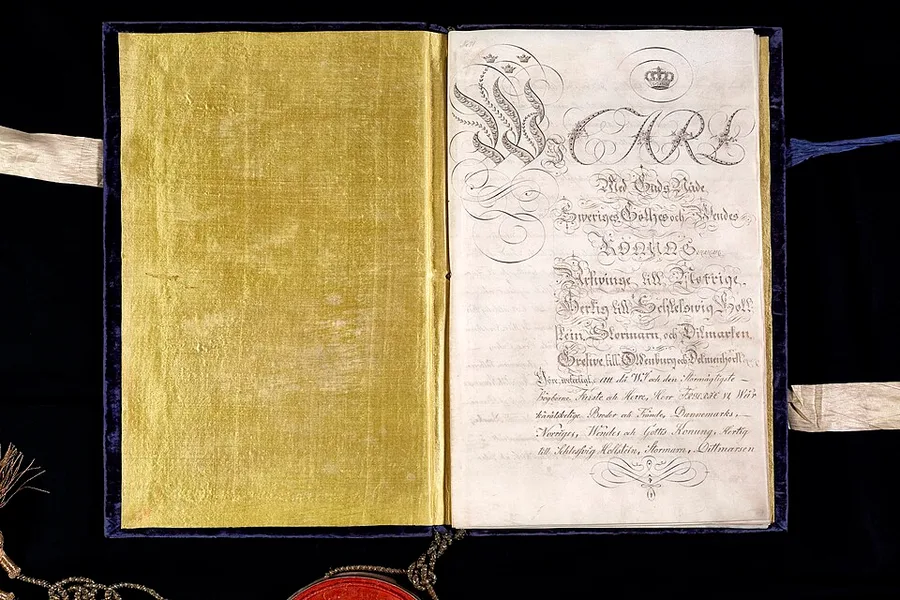 Wi CARL
Med Guds Nåde
Sweriges, Göthes och Wendes
KONUNG
Arfwinge till Norrige,
Hertig till Schleswig Holl
stein, Stormarn, och Ditmarken,
Grefwe till Oldenburg och Delmenhorst
Göre witterligt, att då Wi och den Stormägtigste
högborne Furste och Herre, Herr Wår
käraälskelige Broder och Frände, Dannemarks,
Norriges, Wendes och Göttes Konung, Hertig
till Schlefsvig Hollstein, Stormarn, Dittmarsen